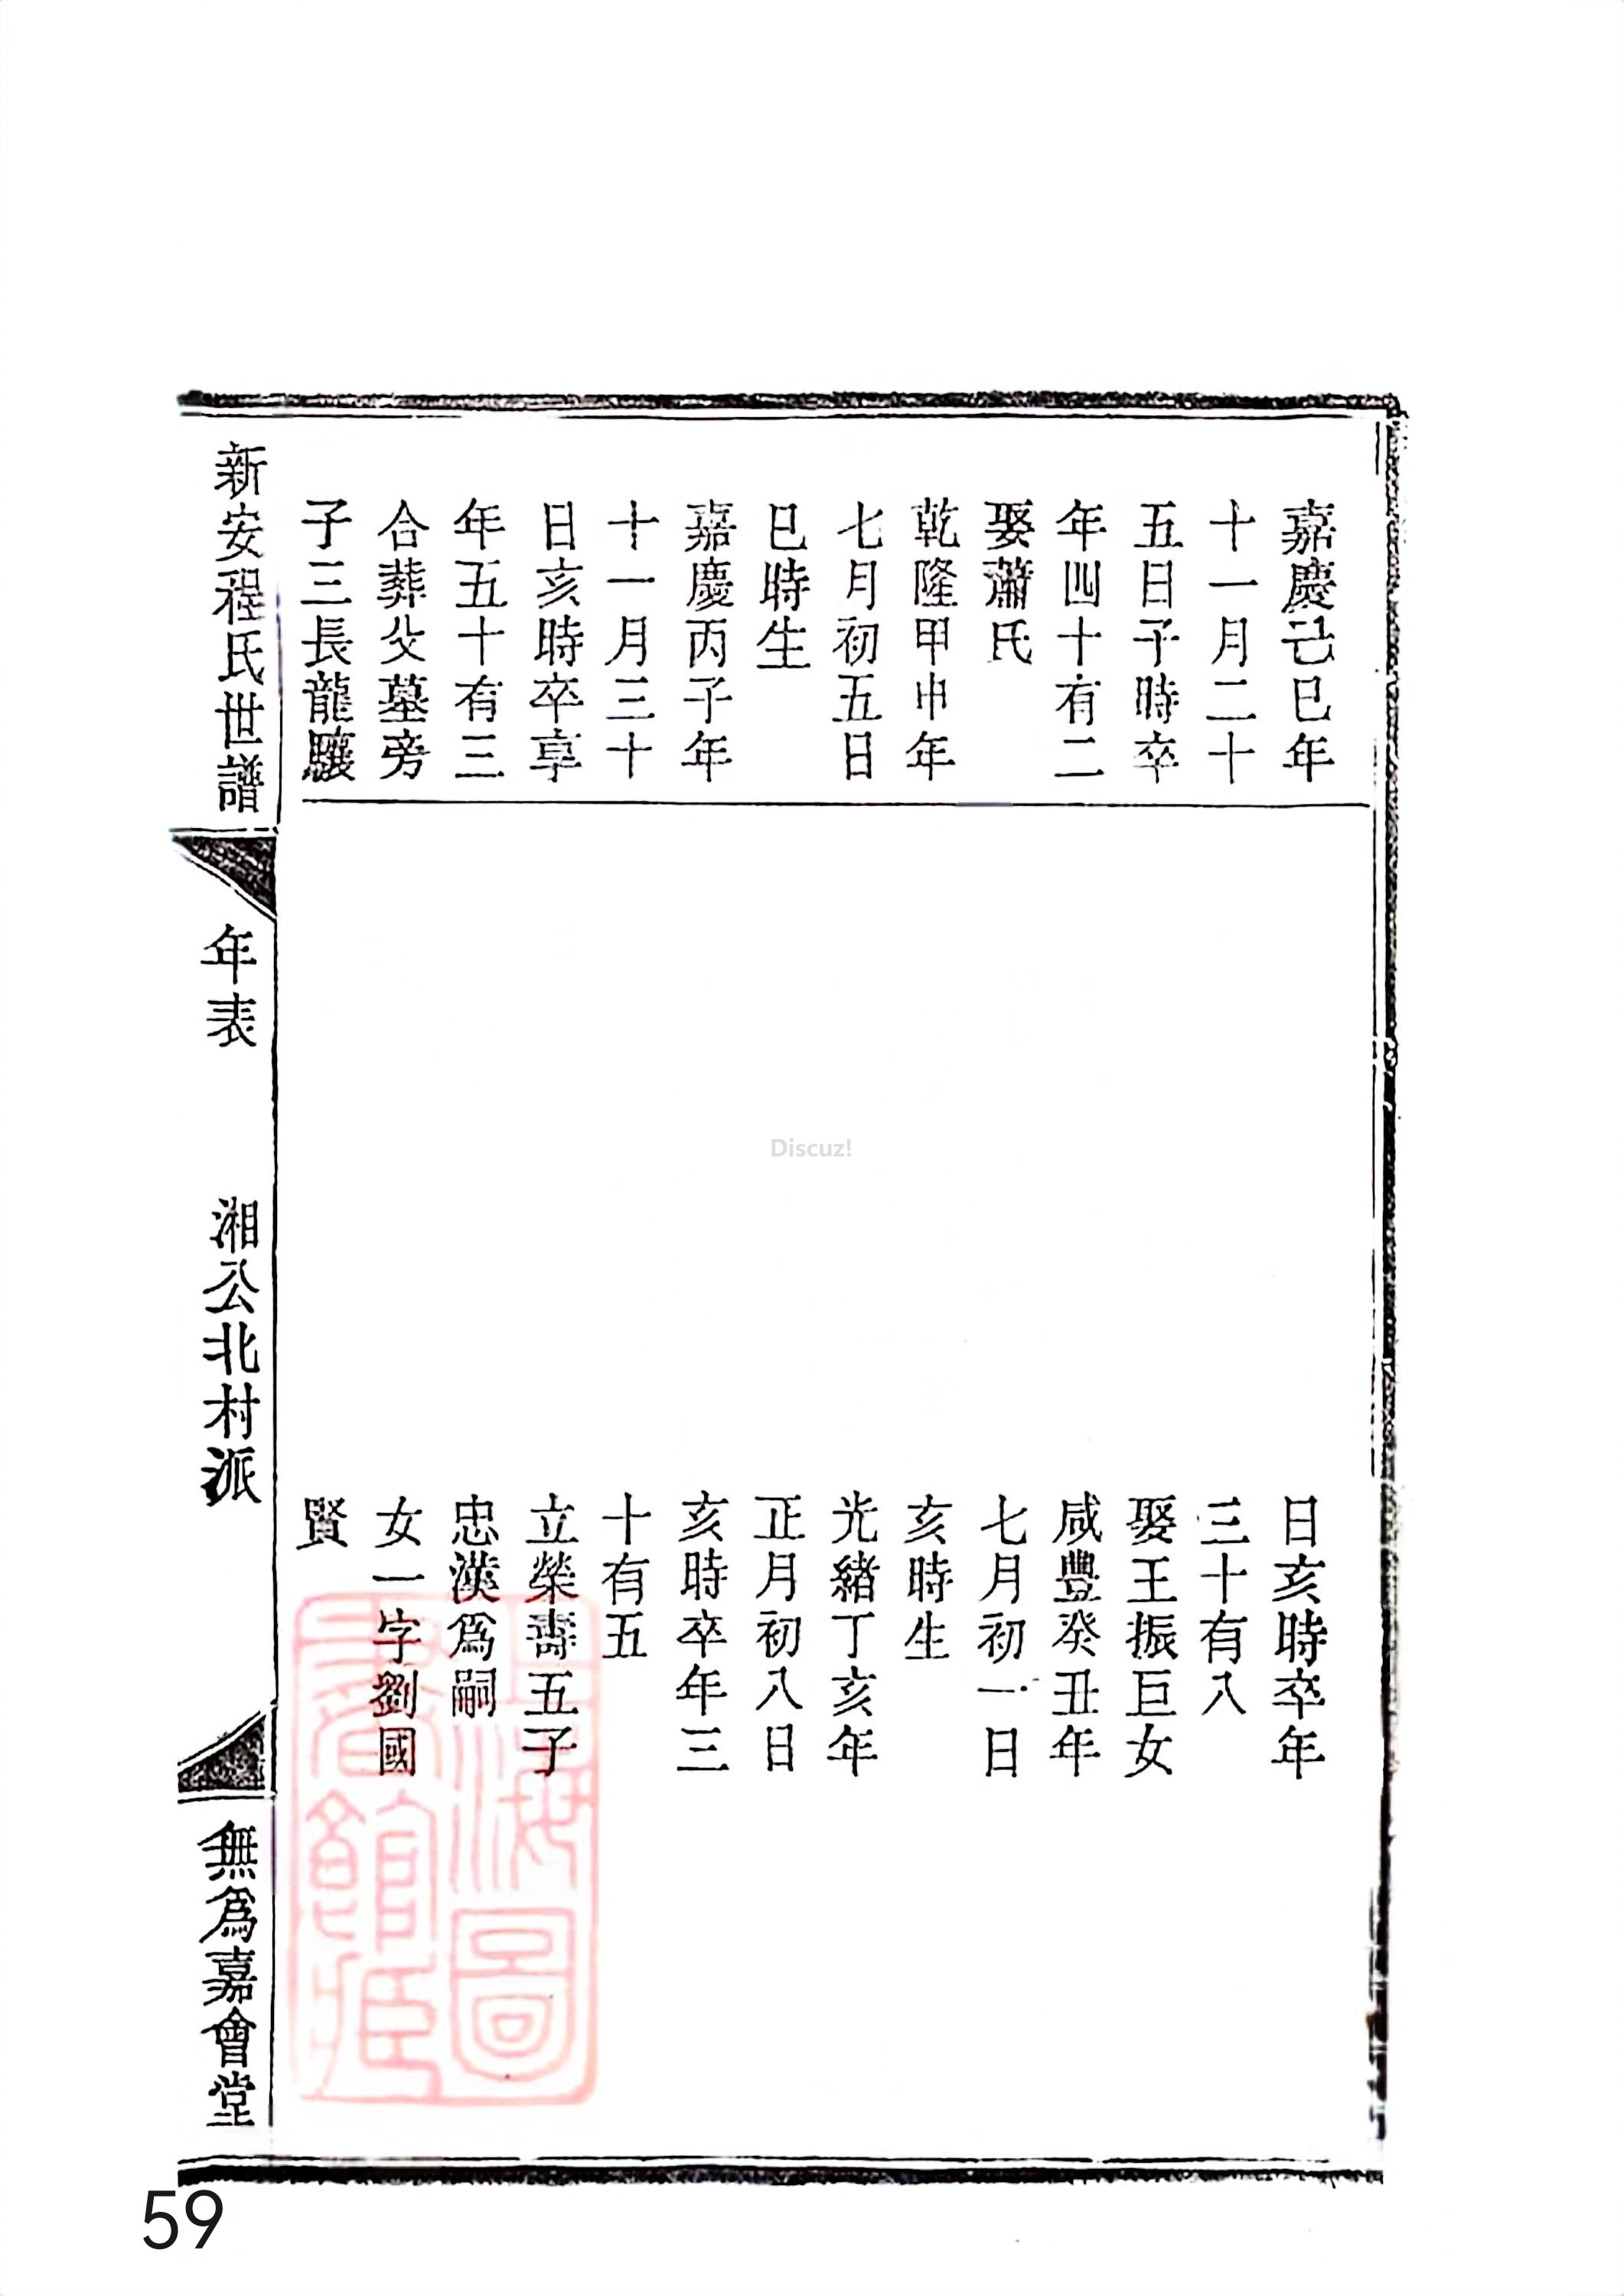 嘉慶己巳年
十一月二十
五日子時卒
年四十有二
娶蕭氏
乾隆甲申年
七月初五日
巳時生
嘉慶丙子年
十一月三十
日亥時卒享
年五十有三
合葬父墓旁
子三長龍驤
日亥時卒年
三十有八
娶王振巨女
咸豐癸丑年
七月初一日
亥時生
光緒丁亥年
正月初八日
亥時卒年三
十有五
立榮壽五子
忠漢爲嗣
女一字劉國
賢
新安程氏世譜
年表
湘公北村派
無爲嘉會堂
上海圖
書館藏
Discuz!
59